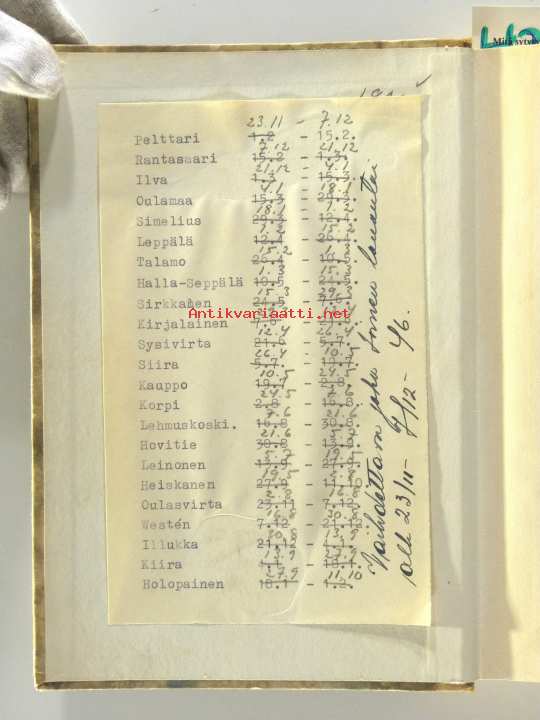 Mitä
23.11 - 7.12
Pelttari 1.2 - 15.2.
7.12 21.12
Rantasaari 15.2 - 1.3.
21.12 4.1
Ilva 1.3 - 15.3.
4.1 18.1
Oulamaa 15.3
18.1 1.2
Simelius
1.2 15.2
Leppälä
15.2 1.3
Talamo
1.3 15.3
Halla-Seppälä 10.5 - 24.5.
15.3 29.3
Sirkkanen 24.5
Antikvariaatti.net
Kirjalainen
12.4 26.4
Sysivirta 21.6 - 5.7.
26.4 10.5
Siira 5.7 - 19.7.
10.5 24.5
Kauppo 19.7 - 2.8.
24.5 7.6
Korpi 2.8 - 16.8.
7.6 21.6
Lehmuskoski. 16.8 - 30.8.
21.6
Hovitie 30.8 - 13.9.
Leinonen 13.9 - 27.9.
Heiskanen 27.9 - 11.10
2.8 16.8
Oulasvirta 23.11 - 7.12.
16.8 30.8
Westén 7.12 - 21.12.
30.8 13.9
Illukka 21.12
13.9 27.9
Kiira
27.9 11.10
Holopainen 18.1 - 1.2.
Vaihdettava joka toinen lauantai
alk 23/11 - 7/12 - 46.